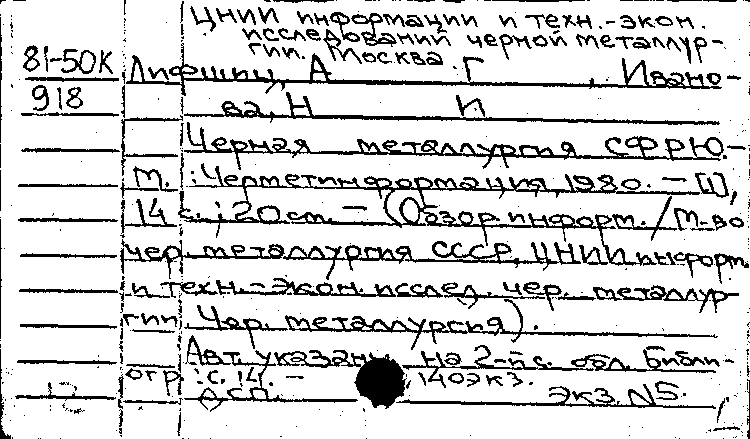 ЦНИИ информации и техн.-экон.
исследований черной металлур-
гии. Москва.
81-50К Лифшиц, А Г , Ивано-
918 ва, Н И
Черная металлургия СФРЮ.-
М. : Черметинформация, 1980. — [1],
14 с. ; 20 см. — (Обзор. информ. / М-во
чер. металлургии СССР, ЦНИИ информ.
и техн.-экон. исслед. чер. металлур-
гии. Чер. металлургия).
Авт. указаны на 2-й с. обл. Библи-
огр.: с. 14. — 140 экз.
ДСП. Экз. N5.